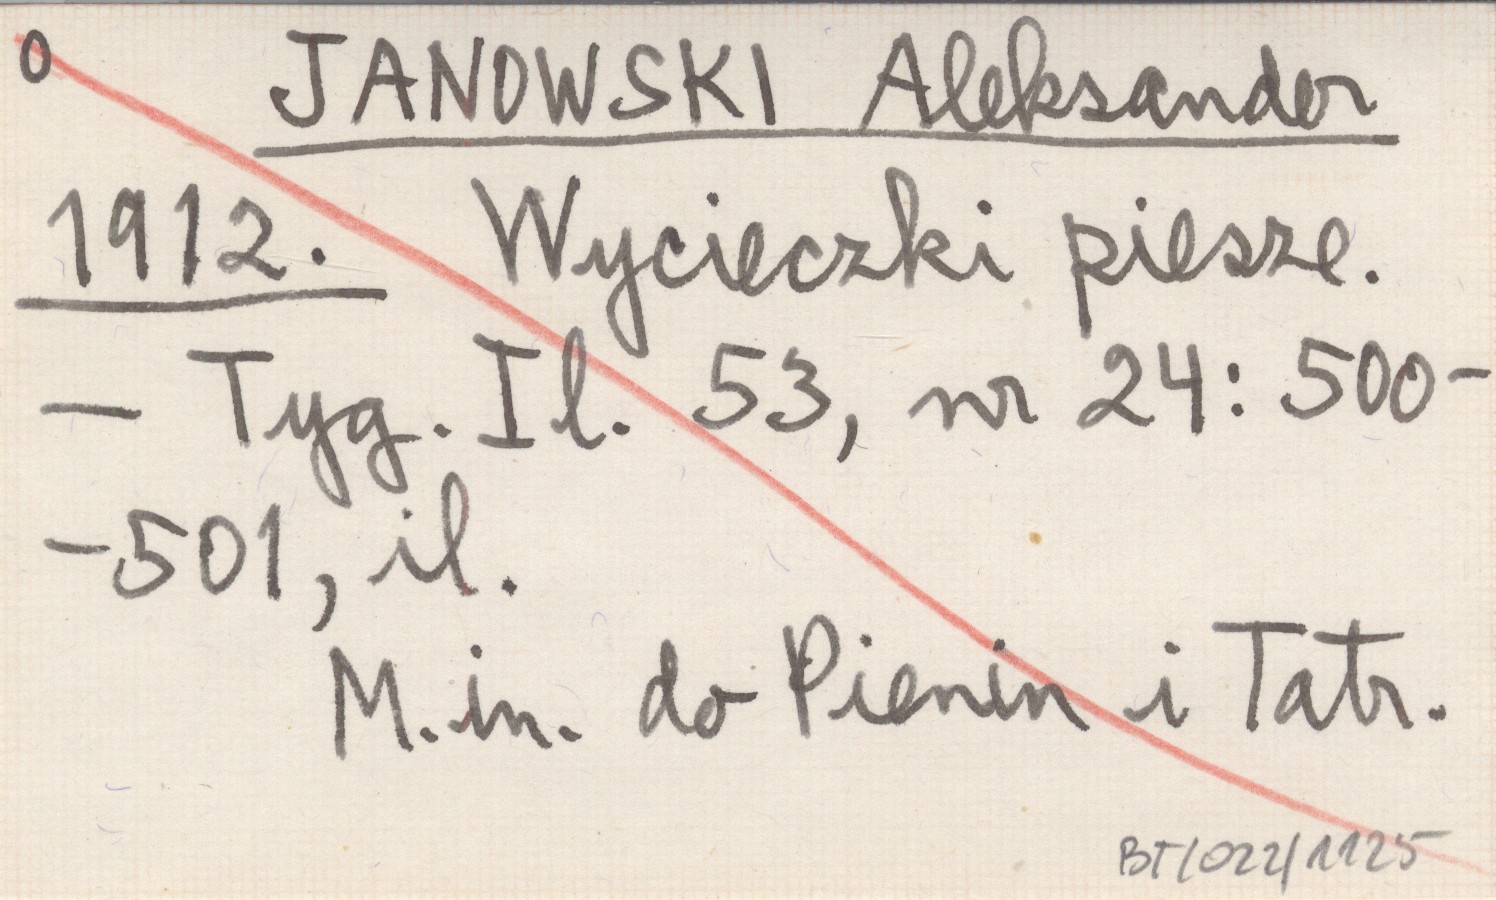 0 JANOWSKI Aleksander
1912. Wycieczki piesze.
— Tyg. Il. 53, nr 24: 500-
-501, il.
M. in. do Pienin i Tatr.
BT/022/1125